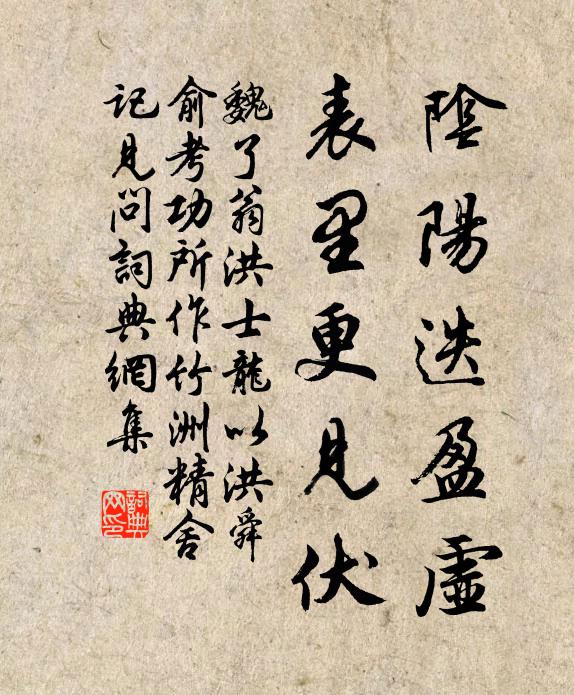 陰陽迭盈虛
表里更見伏
魏了翁洪士龍以洪舜
俞考功所作竹洲精舍
記見問詞典網集
詞典
网印